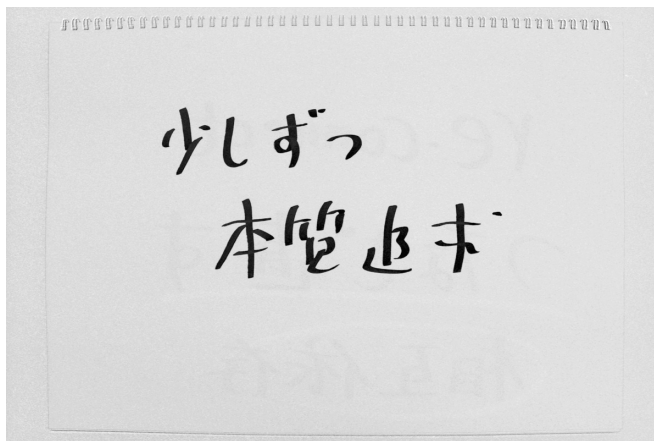 少しずつ
本質追求